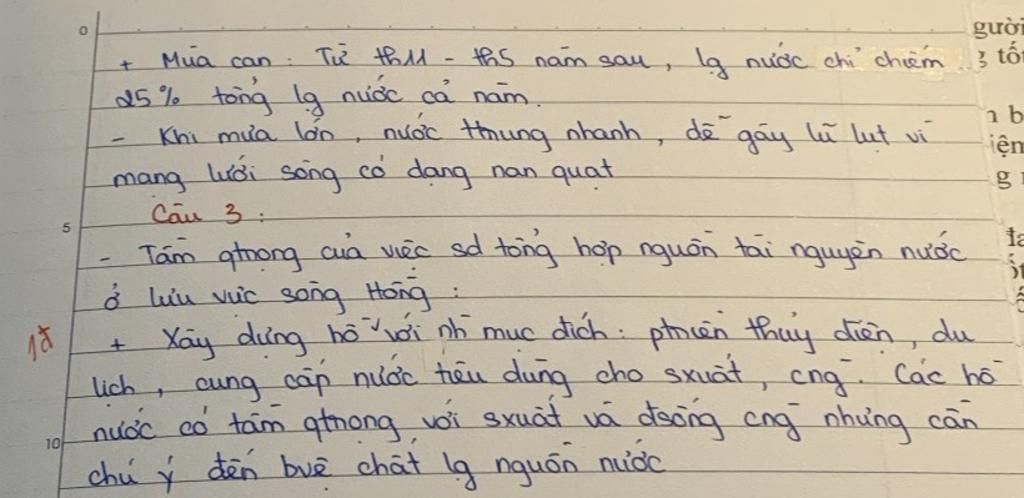 0
+ Mùa cạn : Từ th11 - th5 năm sau, lg nước chỉ chiếm
25% tổng lg nước cả năm.
- Khi mưa lớn, nước ttrung nhanh, dễ gây lũ lụt vì
mạng lưới sông có dạng nan quạt
Câu 3 :
5
- Tầm qtrọng của việc sd tổng hợp nguồn tài nguyên nước
ở lưu vực sông Hồng :
1đ
+ Xây dựng hồ với nh mục đích : ptriển thủy điện, du
lịch, cung cấp nước tiêu dùng cho sxuất, cng. Các hồ
nước có tầm qtrọng với sxuất và đsống cng nhưng cần
10
chú ý đến bvệ chất lg nguồn nước
gười
tối